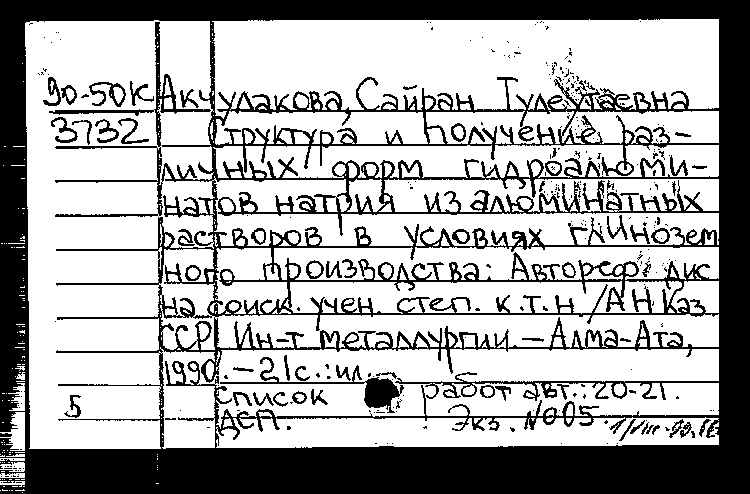 90-50К Акчулакова, Сайран Тулеутаевна
3732 Структура и получение раз-
личных форм гидроалюми-
натов натрия из алюминатных
растворов в условиях глинозем
ного производства: Автореф. дис
на соиск. учен. степ. к.т.н./АН Каз
ССР. Ин-т металлургии.-Алма-Ата,
1990.-21с.:ил.
Список работ авт.: 20-21.
5 ДСП. Экз. №005.